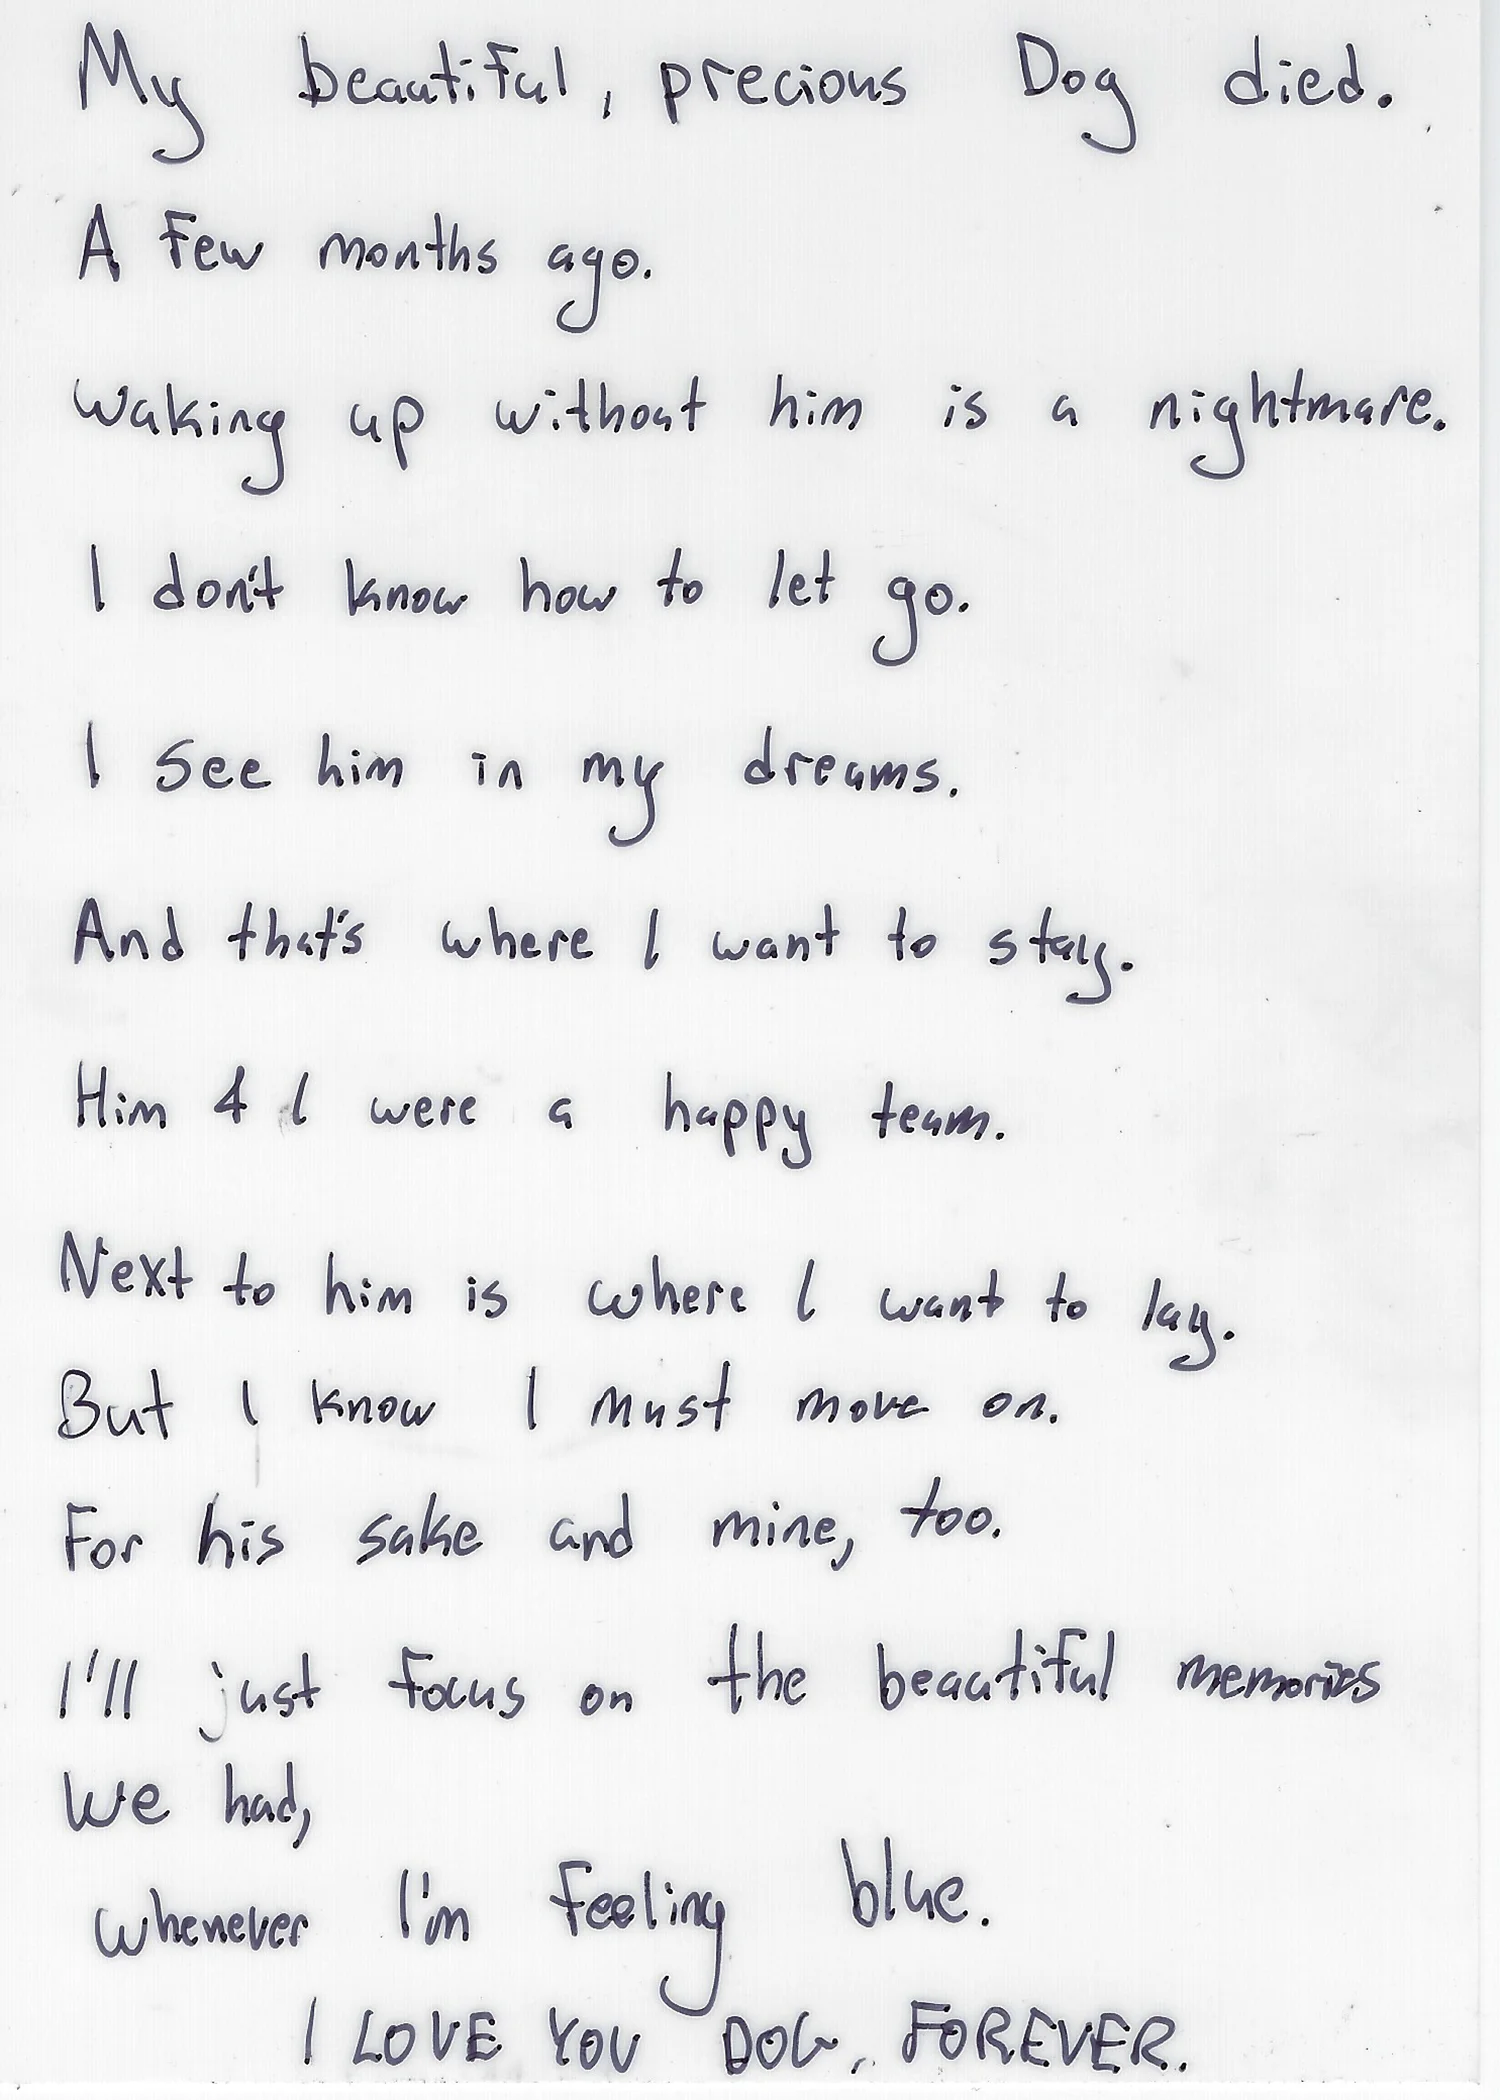 My beautiful, precious Dog died.
A Few months ago.
Waking up without him is a nightmare.
I don't know how to let go.
I see him in my dreams.
And that's where I want to stay.
Him & I were a happy team.
Next to him is where I want to lay.
But I know I must move on.
For his sake and mine, too.
I'll just focus on the beautiful memories
We had,
whenever I'm Feeling blue.
I LOVE YOU DOG, FOREVER.